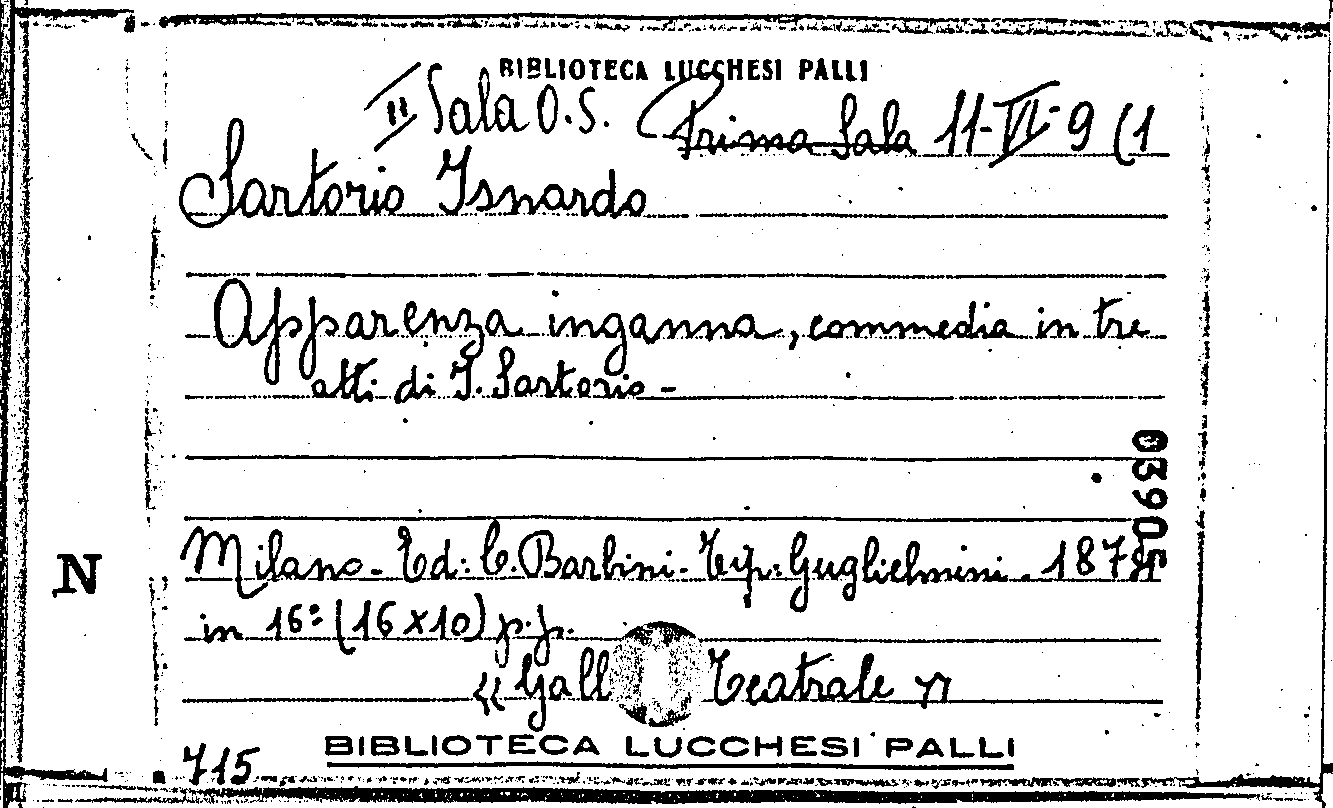 BIBLIOTECA LUCCHESI PALLI
II Sala O.S. Prima Sala 11-VI-9 (1
Sartorio Isnardo
Apparenza inganna, commedia in tre
atti di I. Sartorio -
03905
Milano - Ed: C. Barbini - Tip: Guglielmini - 187
N
in 16° (16 x 10) p.p.
« Gall Teatrale »
BIBLIOTECA LUCCHESI PALLI
715